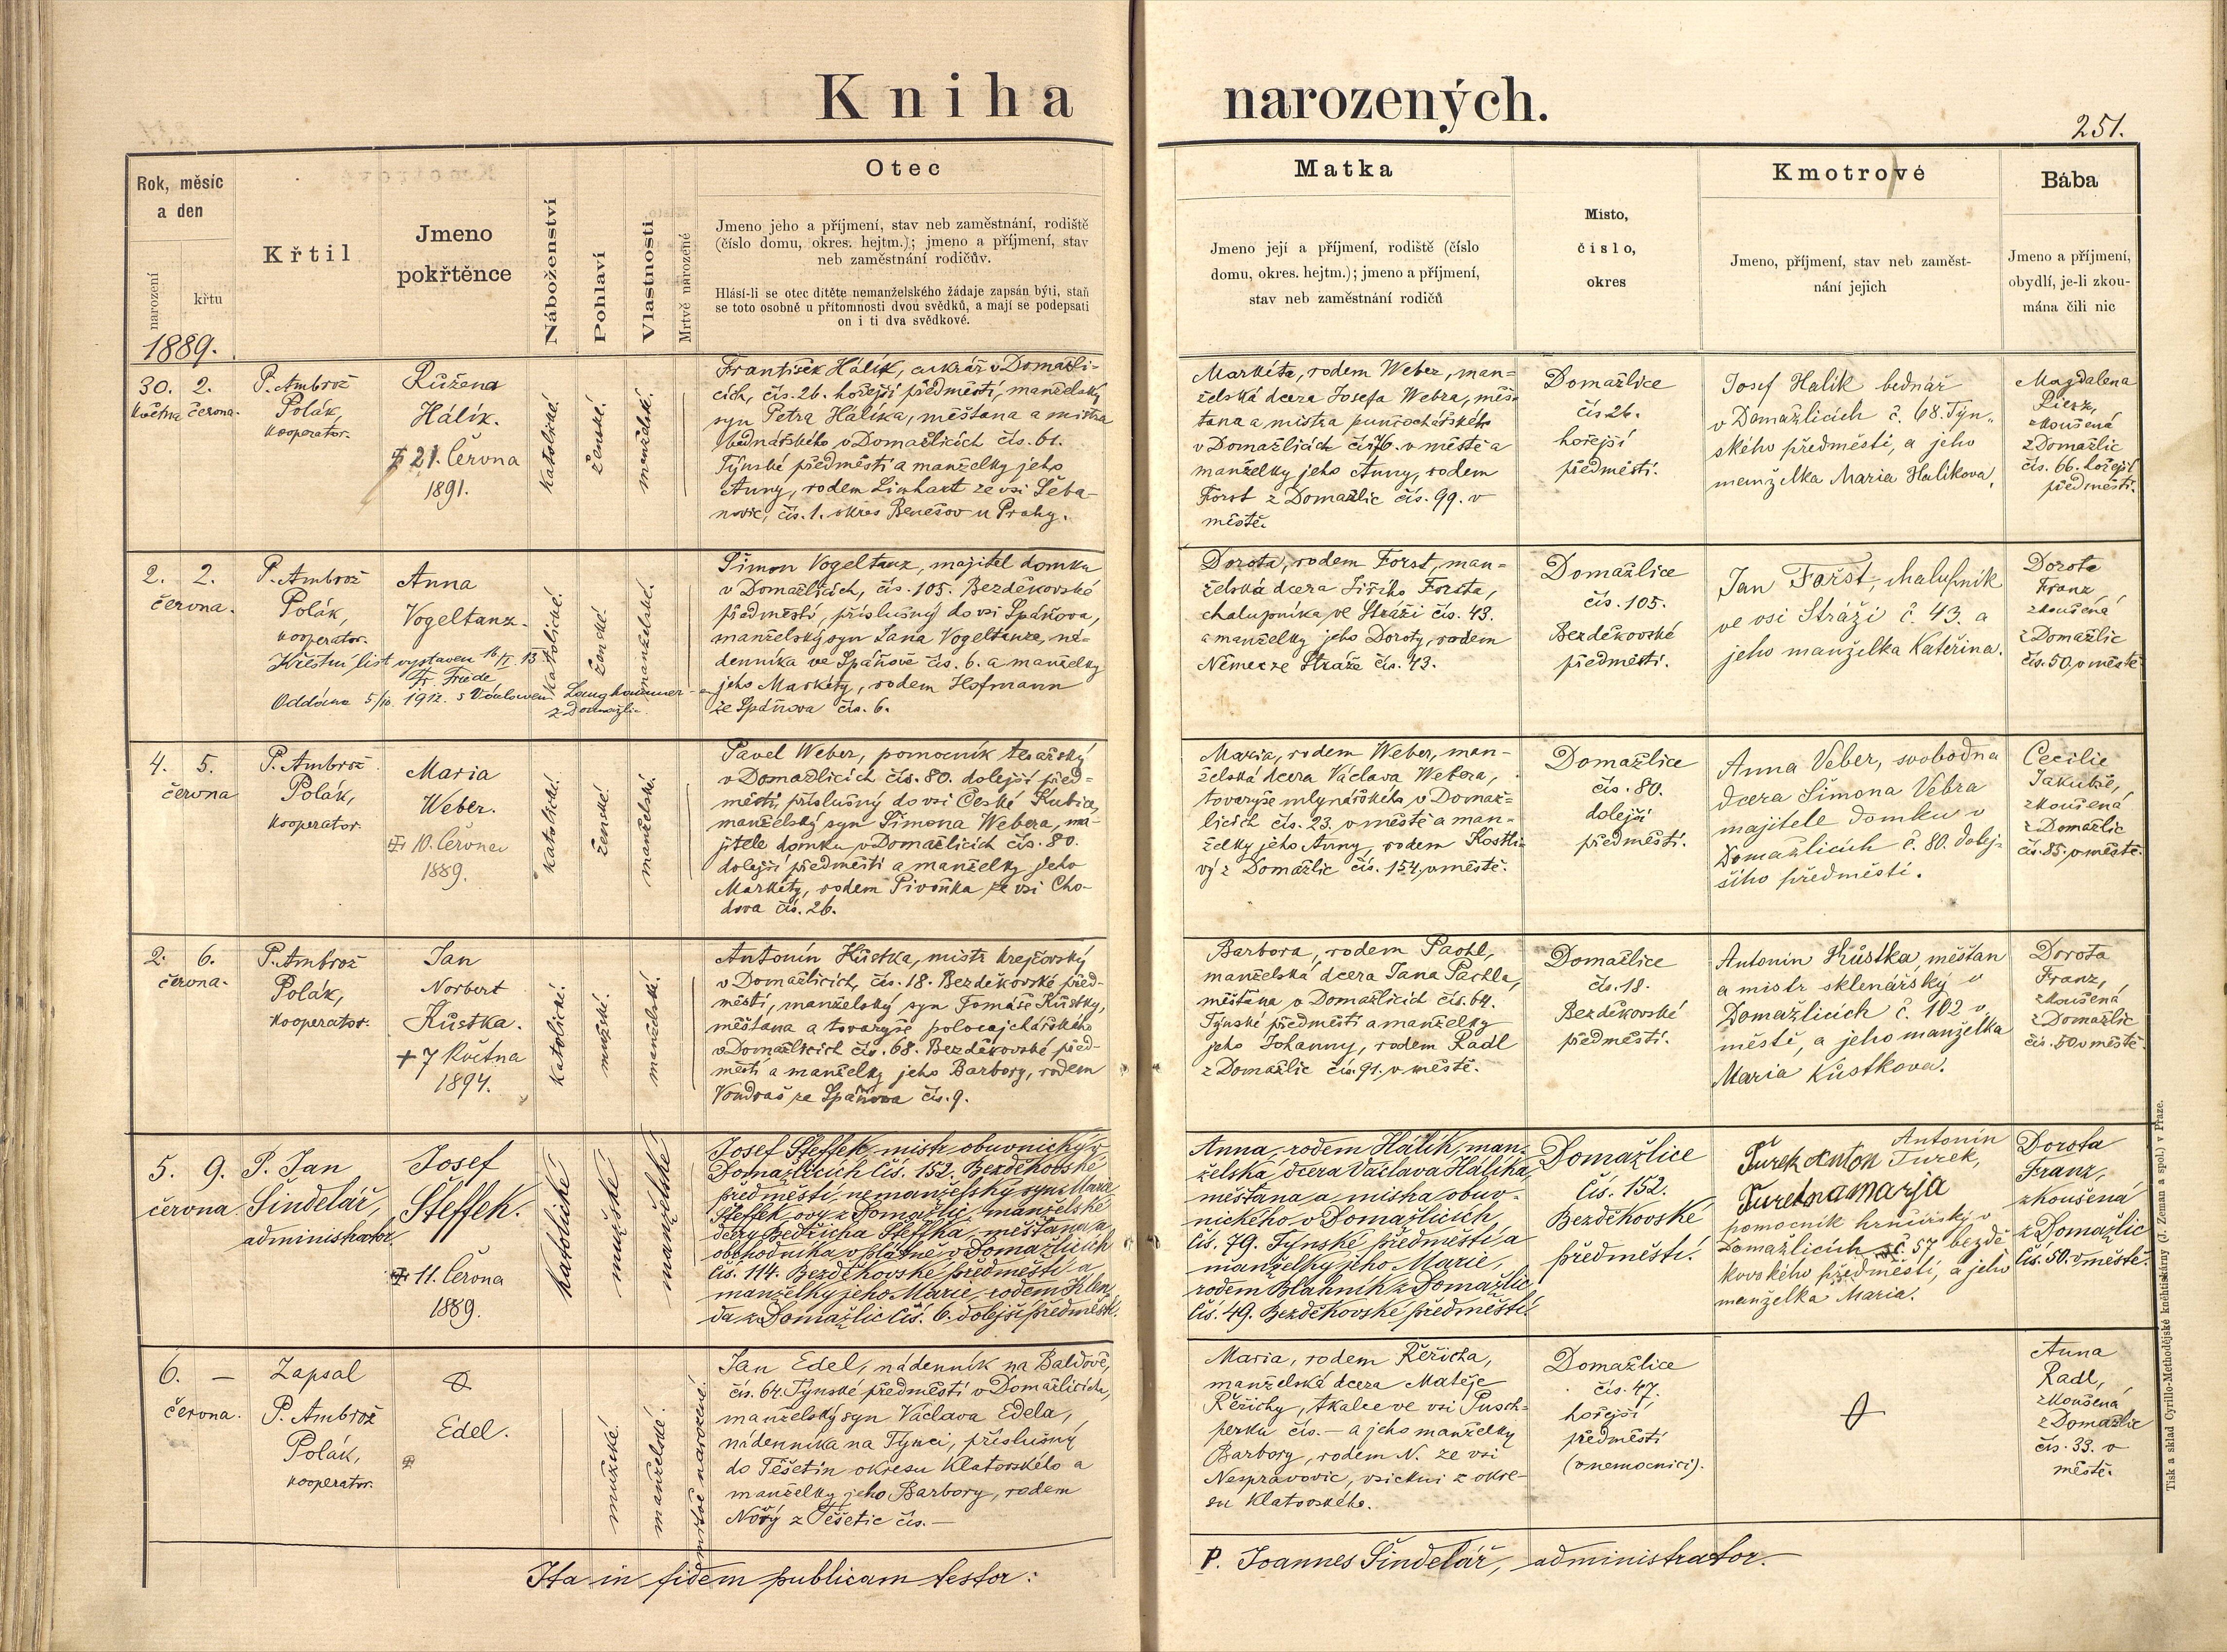 Kniha narozených.
251.
Rok, měsíc
a den
narození
křtu
1889.
Křtil
Jmeno
pokřtěnce
Náboženství
Pohlaví
Vlastnosti
Mrtvě narozené
Otec
Jmeno jeho a příjmení, stav neb zaměstnání, rodiště
(číslo domu, okres. hejtm.); jmeno a příjmení, stav
neb zaměstnání rodičův.
Hlásí-li se otec dítěte nemanželského žádaje zapsán býti, staň
se toto osobně u přítomnosti dvou svědků, a mají se podepsati
on i ti dva svědkové.
Matka
Jmeno její a příjmení, rodiště (číslo
domu, okres. hejtm.); jmeno a příjmení,
stav neb zaměstnání rodičů
Místo,
číslo,
okres
Kmotrové
Jmeno, příjmení, stav neb zaměst-
nání jejich
Bába
Jmeno a příjmení,
obydlí, je-li zkou-
mána čili nic
30. 2.
května června.
P. Ambrož
Polák,
kooperator.
Růžena
Hálík.
21. června
1891.
katolické.
ženské.
manželské.
František Hálík, cukrář v Domažli-
cích, čís. 26. hořejší předměstí, manželský
syn Petra Hálíka, měšťana a mistra
bednářského v Domažlicích čís. 61.
Týnské předměstí a manželky jeho
Anny, rodem Linhart ze vsi Šeba-
novic, čís. 1. okres Benešov u Prahy.
Markéta, rodem Weber, man-
želská dcera Josefa Webra, měš-
ťana a mistra punčochářského
v Domažlicích čís. 76. v městě a
manželky jeho Anny, rodem
Forst z Domažlic čís. 99. v
městě.
Domažlice
čís 26.
hořejší
předměstí.
Josef Halík bednář
v Domažlicích č. 68. Týn-
ského předměstí, a jeho
manželka Maria Halíkova,
Magdalena
zkoušená
z Domažlic
čís. 66. hořejší
předměstí.
2. 2.
června.
P. Ambrož
Polák,
kooperator.
Anna
Vogeltanz.
Křestní list vystaven 16/II. 13
Fr. Friede
Oddána 5/10. 1912. s Václavem Langhammer-em
z Domažlic.
katolické.
ženské.
manželské.
Šimon Vogeltanz, majitel domku
v Domažlicích, čís. 105. Bezděkovské
předměstí, příslušný do vsi Spáňova,
manželský syn Jana Vogeltanze, ná-
denníka ve Spáňově čís. 6. a manželky
jeho Markéty, rodem Hofmann
ze Spáňova čís. 6.
Dorota, rodem Forst, man-
želská dcera Jiřího Forsta,
chalupníka ve Stráži čís. 43.
a manželky jeho Doroty, rodem
Němec ze Stráže čís. 43.
Domažlice
čís. 105.
Bezděkovské
předměstí.
Jan Foršt, chalupník
ve vsi Stráži č. 43. a
jeho manželka Kateřina.
Dorota
Franz,
zkoušená
z Domažlic
čís. 50. v městě
4. 5.
června
P. Ambrož
Polák,
kooperator.
Maria
Weber.
10. června
1889.
katolické.
ženské.
manželské.
Pavel Weber, pomocník tesařský
v Domažlicích čís. 80. dolejší před-
městí, příslušný do vsi České Kubice,
manželský syn Šimona Webera, ma-
jitele domku v Domažlicích čís. 80.
dolejší předměstí a manželky jeho
Markéty, rodem Pivoňka ze vsi Cho-
dova čís. 26.
Maria, rodem Weber, man-
želská dcera Václava Webera,
tovaryše mlynářského v Domaž-
licích čís. 23. v městě a man-
želky jeho Anny, rodem Kostli-
vý z Domažlic čís. 154. v městě.
Domažlice
čís. 80.
dolejší
předměstí.
Anna Veber, svobodna
dcera Šimona Vebra
majitele domku v
Domažlicích č. 80. dolej-
šího předměstí.
Cecilie
Jakubše,
zkoušená
z Domažlic
čís. 85. v městě.
2. 6.
června.
P. Ambrož
Polák,
kooperator.
Jan
Norbert
Kůstka.
+ 7 května
1894.
katolické.
mužské.
manželské.
Antonín Kůstka, mistr krejčovský
v Domažlicích, čís. 18. Bezděkovské před-
městí, manželský syn Tomáše Kůstky,
měšťana a tovaryše
v Domažlicích čís. 68. Bezděkovské před-
městí a manželky jeho Barbory, rodem
Vondraš ze Spáňova čís. 9.
Barbora, rodem Pachl,
manželská dcera Jana Pachla,
měšťana v Domažlicích čís. 64.
Týnské předměstí a manželky
jeho Johanny, rodem Radl
z Domažlic čís. 91. v městě.
Domažlice
čís. 18.
Bezděkovské
předměstí.
Antonín Kůstka, měštan
a mistr sklenářský v
Domažlicích č. 102 v
městě, a jeho manželka
Maria Kůstkova.
Dorota
Franz,
zkoušená
z Domažlic
čís. 50 v městě.
5. 9.
června
P. Jan
Šindelář,
administrator
Josef
Šteffek.
11. června
1889.
katolické
mužské
manželské
Josef Šteffek, mistr obuvnický v
Domažlicích čís. 152. Bezděkovské
předměstí, nemanželský syn Marie
Šteffek-ovy z Domažlic, manželské
dcery Bedřicha Šteffka, měšťana a
obchodníka v plátně v Domažlicích
čís. 114. Bezděkovské předměstí a
manželky jeho Marie, rodem Klen-
da z Domažlic čís. 6. dolejší předměstí.
Anna, rodem Hálík, man-
želská dcera Václava Hálíka,
měšťana a mistra obuv-
nického v Domažlicích,
čís. 79. Týnské předměstí a
manželky jeho Marie,
rodem Blahník z Domažlic
čís. 49. Bezděkovské předměstí.
Domažlice
čís. 152.
Bezděkovské
předměstí.
Antonín
Turek Anton Turek,
Turekna marja
pomocník hrnčířský v
Domažlicích č. 57 bezdě
kovského předměstí, a jeho
manželka Maria.
Dorota
Franz,
zkoušená
z Domažlic
čís. 50. v městě.
6. —
června.
Zapsal
P. Ambrož
Polák,
kooperator.
Edel.
mužské.
manželské.
mrtvě narozené.
Jan Edel, nádenník na Baldově,
čís. 64. Týnské předměstí v Domažlicích,
manželský syn Václava Edela,
nádenníka na Týnci, příslušný
do Těšetin okresu Klatovského a
manželky jeho Barbory, rodem
Nový z Těšetic čís. —
Maria, rodem Řěřicha,
manželská dcera Matěje
Řěřichy, tkalce ve vsi Pusch-
perku čís. — a jeho manželky
Barbory, rodem N. ze vsi
Nespravovic, všickni z okre-
su Klatovského.
Domažlice
čís. 47.
hořejší
předměstí
(v nemocnici).
Anna
Radl,
zkoušená
z Domažlic
čís. 33. v
městě.
Ita in fidem publicam testor:
P. Joannes Šindelář, administrator.
Tisk a sklad Cyrillo-Methodějské knihtiskárny (J. Zeman a spol.) v Praze.